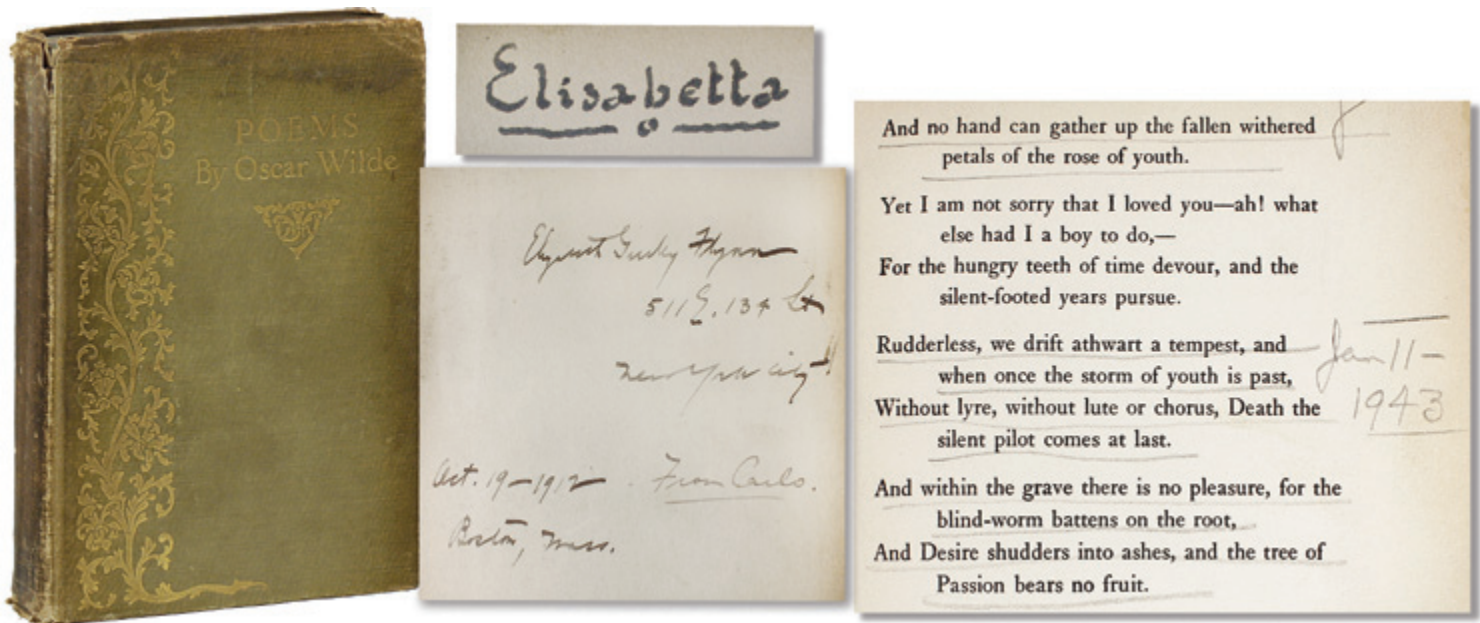 POEMS
By Oscar Wilde
Elisabetta
Elizabeth Gurley Flynn
511 E. 134 St
New York City
Oct. 19-1912. From Carlo.
Boston, Mass.
And no hand can gather up the fallen withered
petals of the rose of youth.
Yet I am not sorry that I loved you—ah! what
else had I a boy to do,—
For the hungry teeth of time devour, and the
silent-footed years pursue.
Rudderless, we drift athwart a tempest, and
when once the storm of youth is past,
Without lyre, without lute or chorus, Death the
silent pilot comes at last.
And within the grave there is no pleasure, for the
blind-worm battens on the root,
And Desire shudders into ashes, and the tree of
Passion bears no fruit.
Jan 11-
1943